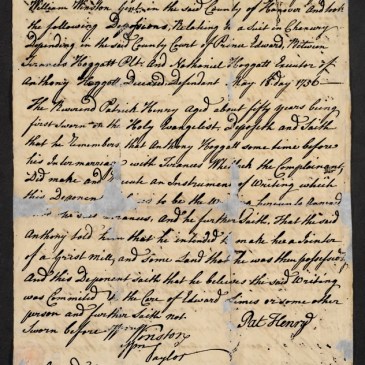 William Winston Gent. in the said County of Hanover And took
the following Depositions, Relating to a Suit in Chancery
Depending in the said County Court of Prince Edward, Between
Francis Hoggatt Plt. And Nathaniel Hoggatt Executor of
Anthony Hoggatt Deceased Defendent May 18 day 1756
The Reverend Patrick Henry Aged about fifty years being
first Sworn on the Holy Evangelist, Deposeth and Saith
that he Remembers, that Anthony Hoggatt some time before
his Intermarriage with Frances the Complainant
Did make and an Instrument of Writing which
this to be the hereunto Annexed
And he further Saith, That the said
Anthony told him that he intended to make her a Jointer
of a Grist Mill, and Some Land that he was then possessed of
And this Deponent saith that he believes the said Writing
was Commited to the Care of Edward or some other
person and further Saith not.
Sworn before Wm Winston Pat Henry
Taylor